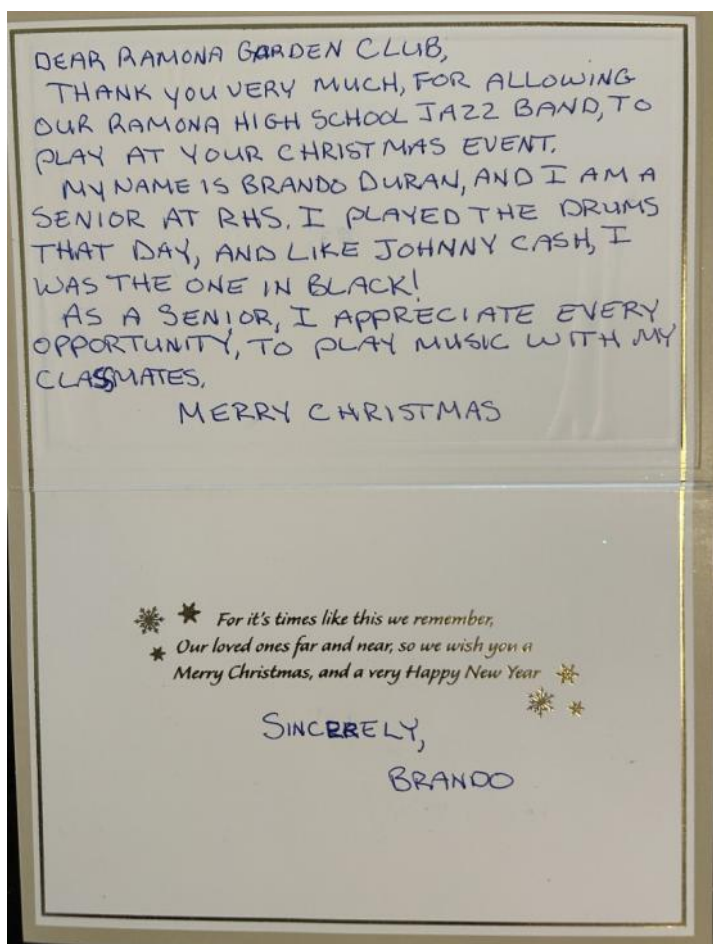 DEAR RAMONA GARDEN CLUB,
THANK YOU VERY MUCH, FOR ALLOWING
OUR RAMONA HIGH SCHOOL JAZZ BAND, TO
PLAY AT YOUR CHRISTMAS EVENT.
MY NAME IS BRANDO DURAN, AND I AM A
SENIOR AT RHS. I PLAYED THE DRUMS
THAT DAY, AND LIKE JOHNNY CASH, I
WAS THE ONE IN BLACK!
AS A SENIOR, I APPRECIATE EVERY
OPPORTUNITY, TO PLAY MUSIC WITH MY
CLASSMATES.
MERRY CHRISTMAS
For it's times like this we remember,
Our loved ones far and near, so we wish you a
Merry Christmas, and a very Happy New Year
SINCERELY,
BRANDO